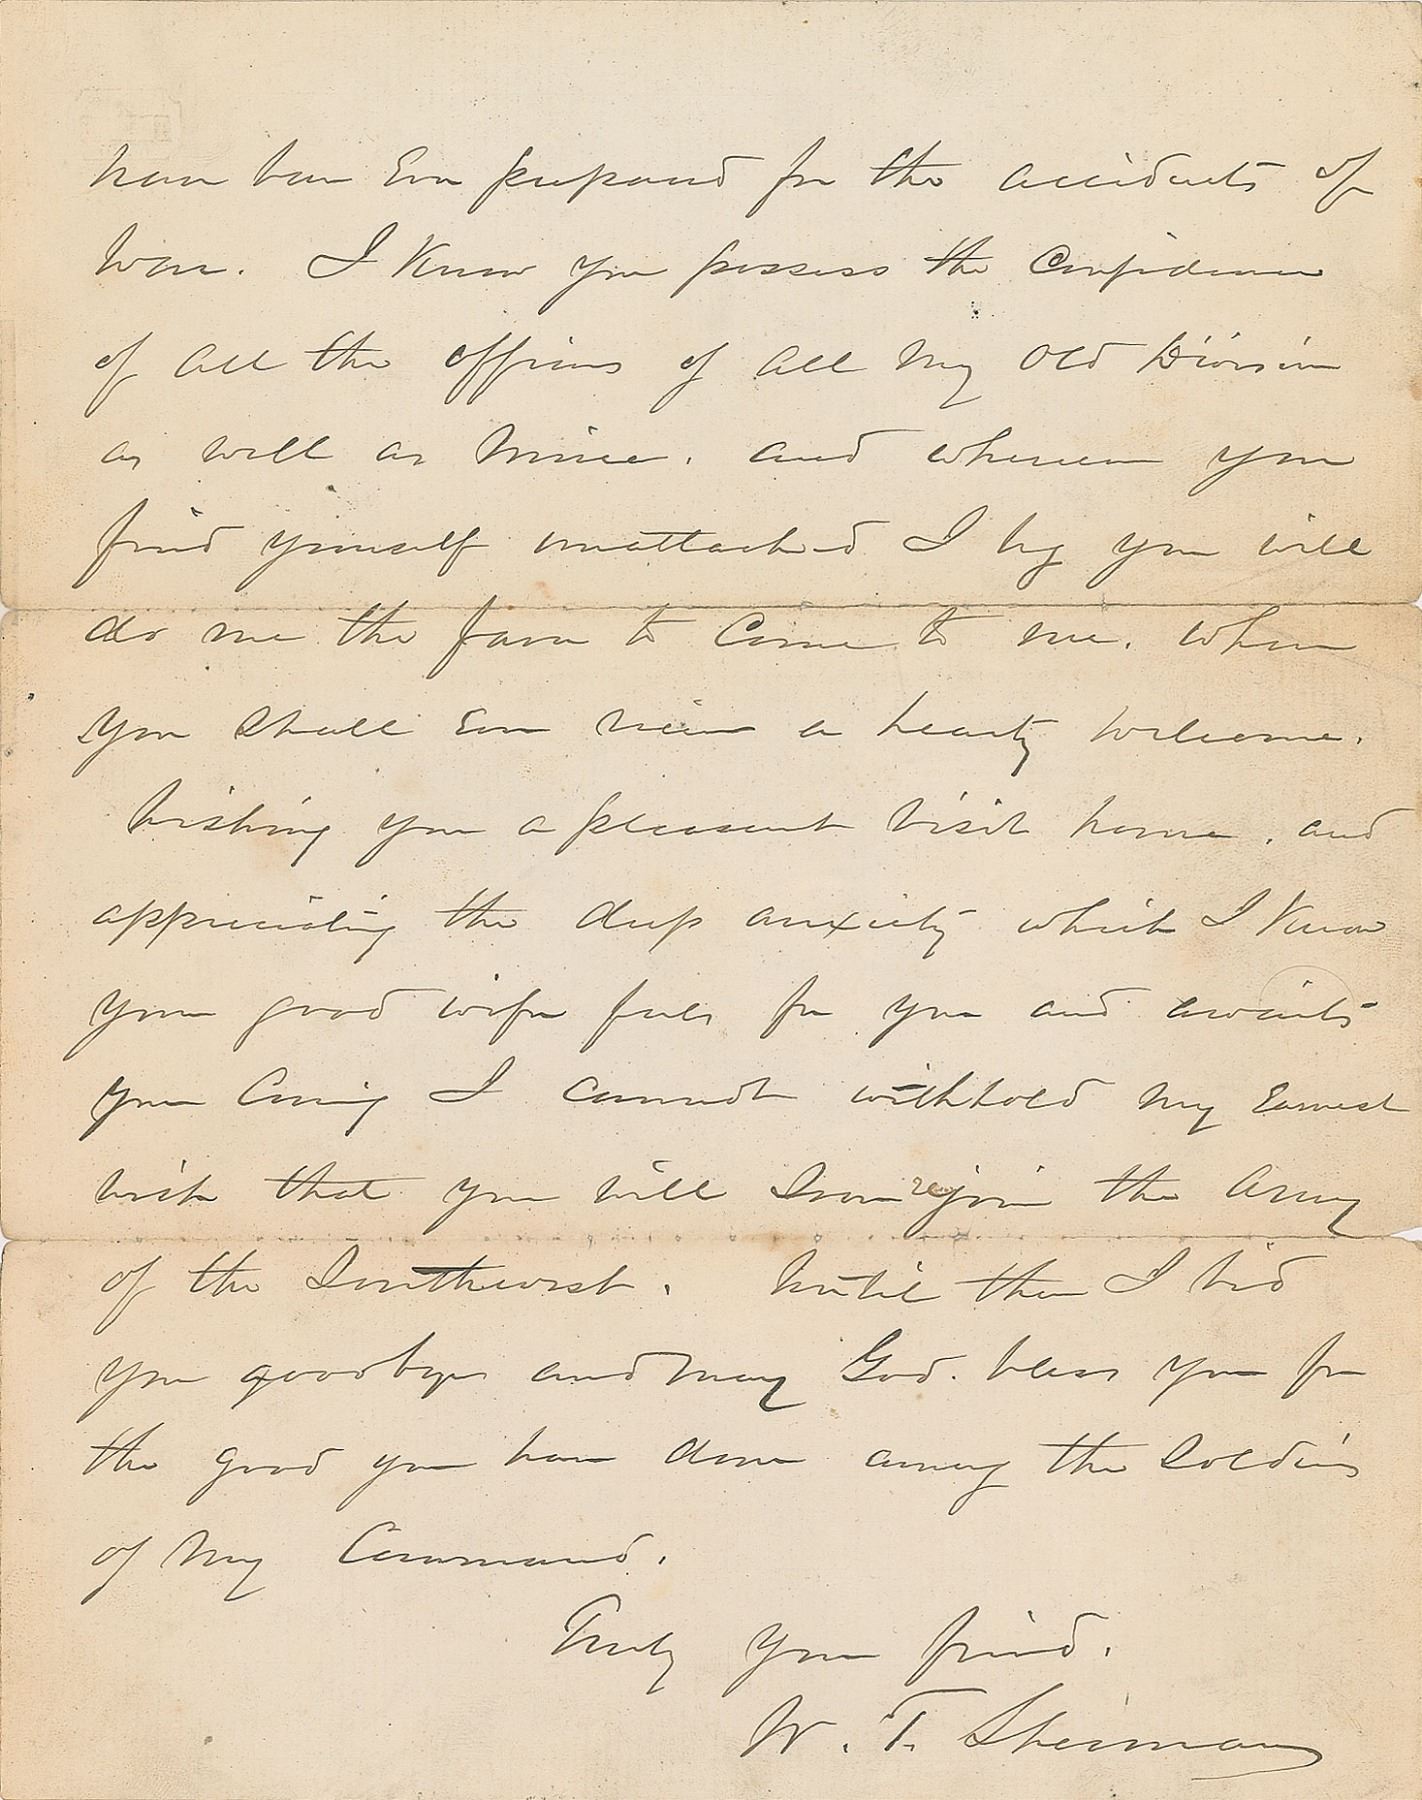 have been Ever prepared for the accidents of
War. I Know you possess the Confidence
of all the officers of all my old Division
as well as mine. and whenever you
find yourself unattached I beg you will
do me the favor to Come to me. when
you shall Ever receive a hearty welcome.
Wishing you a pleasant visit home, and
appreciating the deep anxiety which I Know
your good wife feels for you and awaits
your Coming I cannot withhold my Earnest
wish that you will soon rejoin the Army
of the Southwest. Until then I bid
you goodbye and may God. bless you for
the good you have done among the Soldiers
of my Command.
Truly your friend.
W. T. Sherman